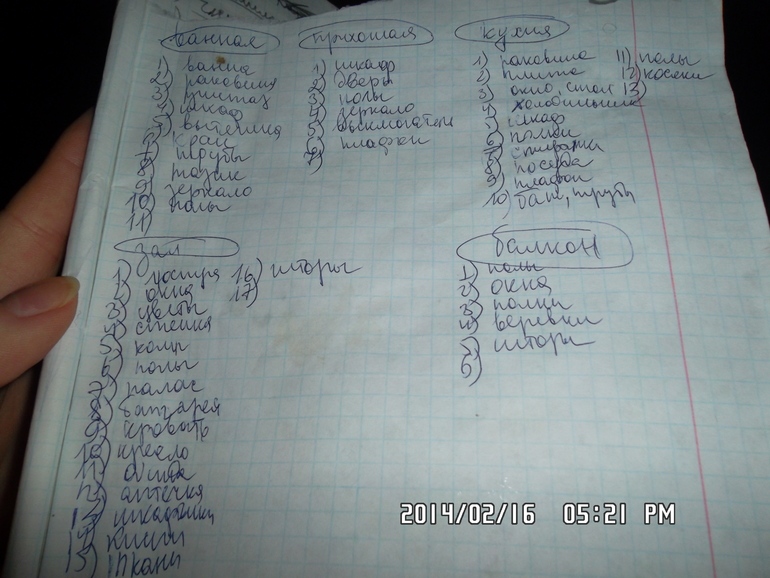 ванная
1) ванна
2) раковина
3) унитаз
4) шкаф
5) вытяжка
6) кран
7) трубы
8) тазик
9) зеркало
10) полы
11)
прихожая
1) шкаф
2) дверь
3) полы
4) зеркало
5) выкмогатели
6) плафон
7)
кухня
1) раковина
2) плита
3) окно, стол
4) холодильник
5) шкаф
6) полки
7) стиралка
8) посуда
9) плафон
10) бат, трубы
11) полы
12) косяки
13)
зал
1) люстра
2) окна
3) цветы
4) стенка
5) комп
6) полы
7) палас
8) батарея
9) кровать
10) кресло
11) обувь
12) аптечка
13) шкафчики
14) книги
15) ткани
16) шторы
17)
балкон
1) полы
2) окна
3) полки
4) веревки
5) шторы
6)
2014/02/16 05:21 PM